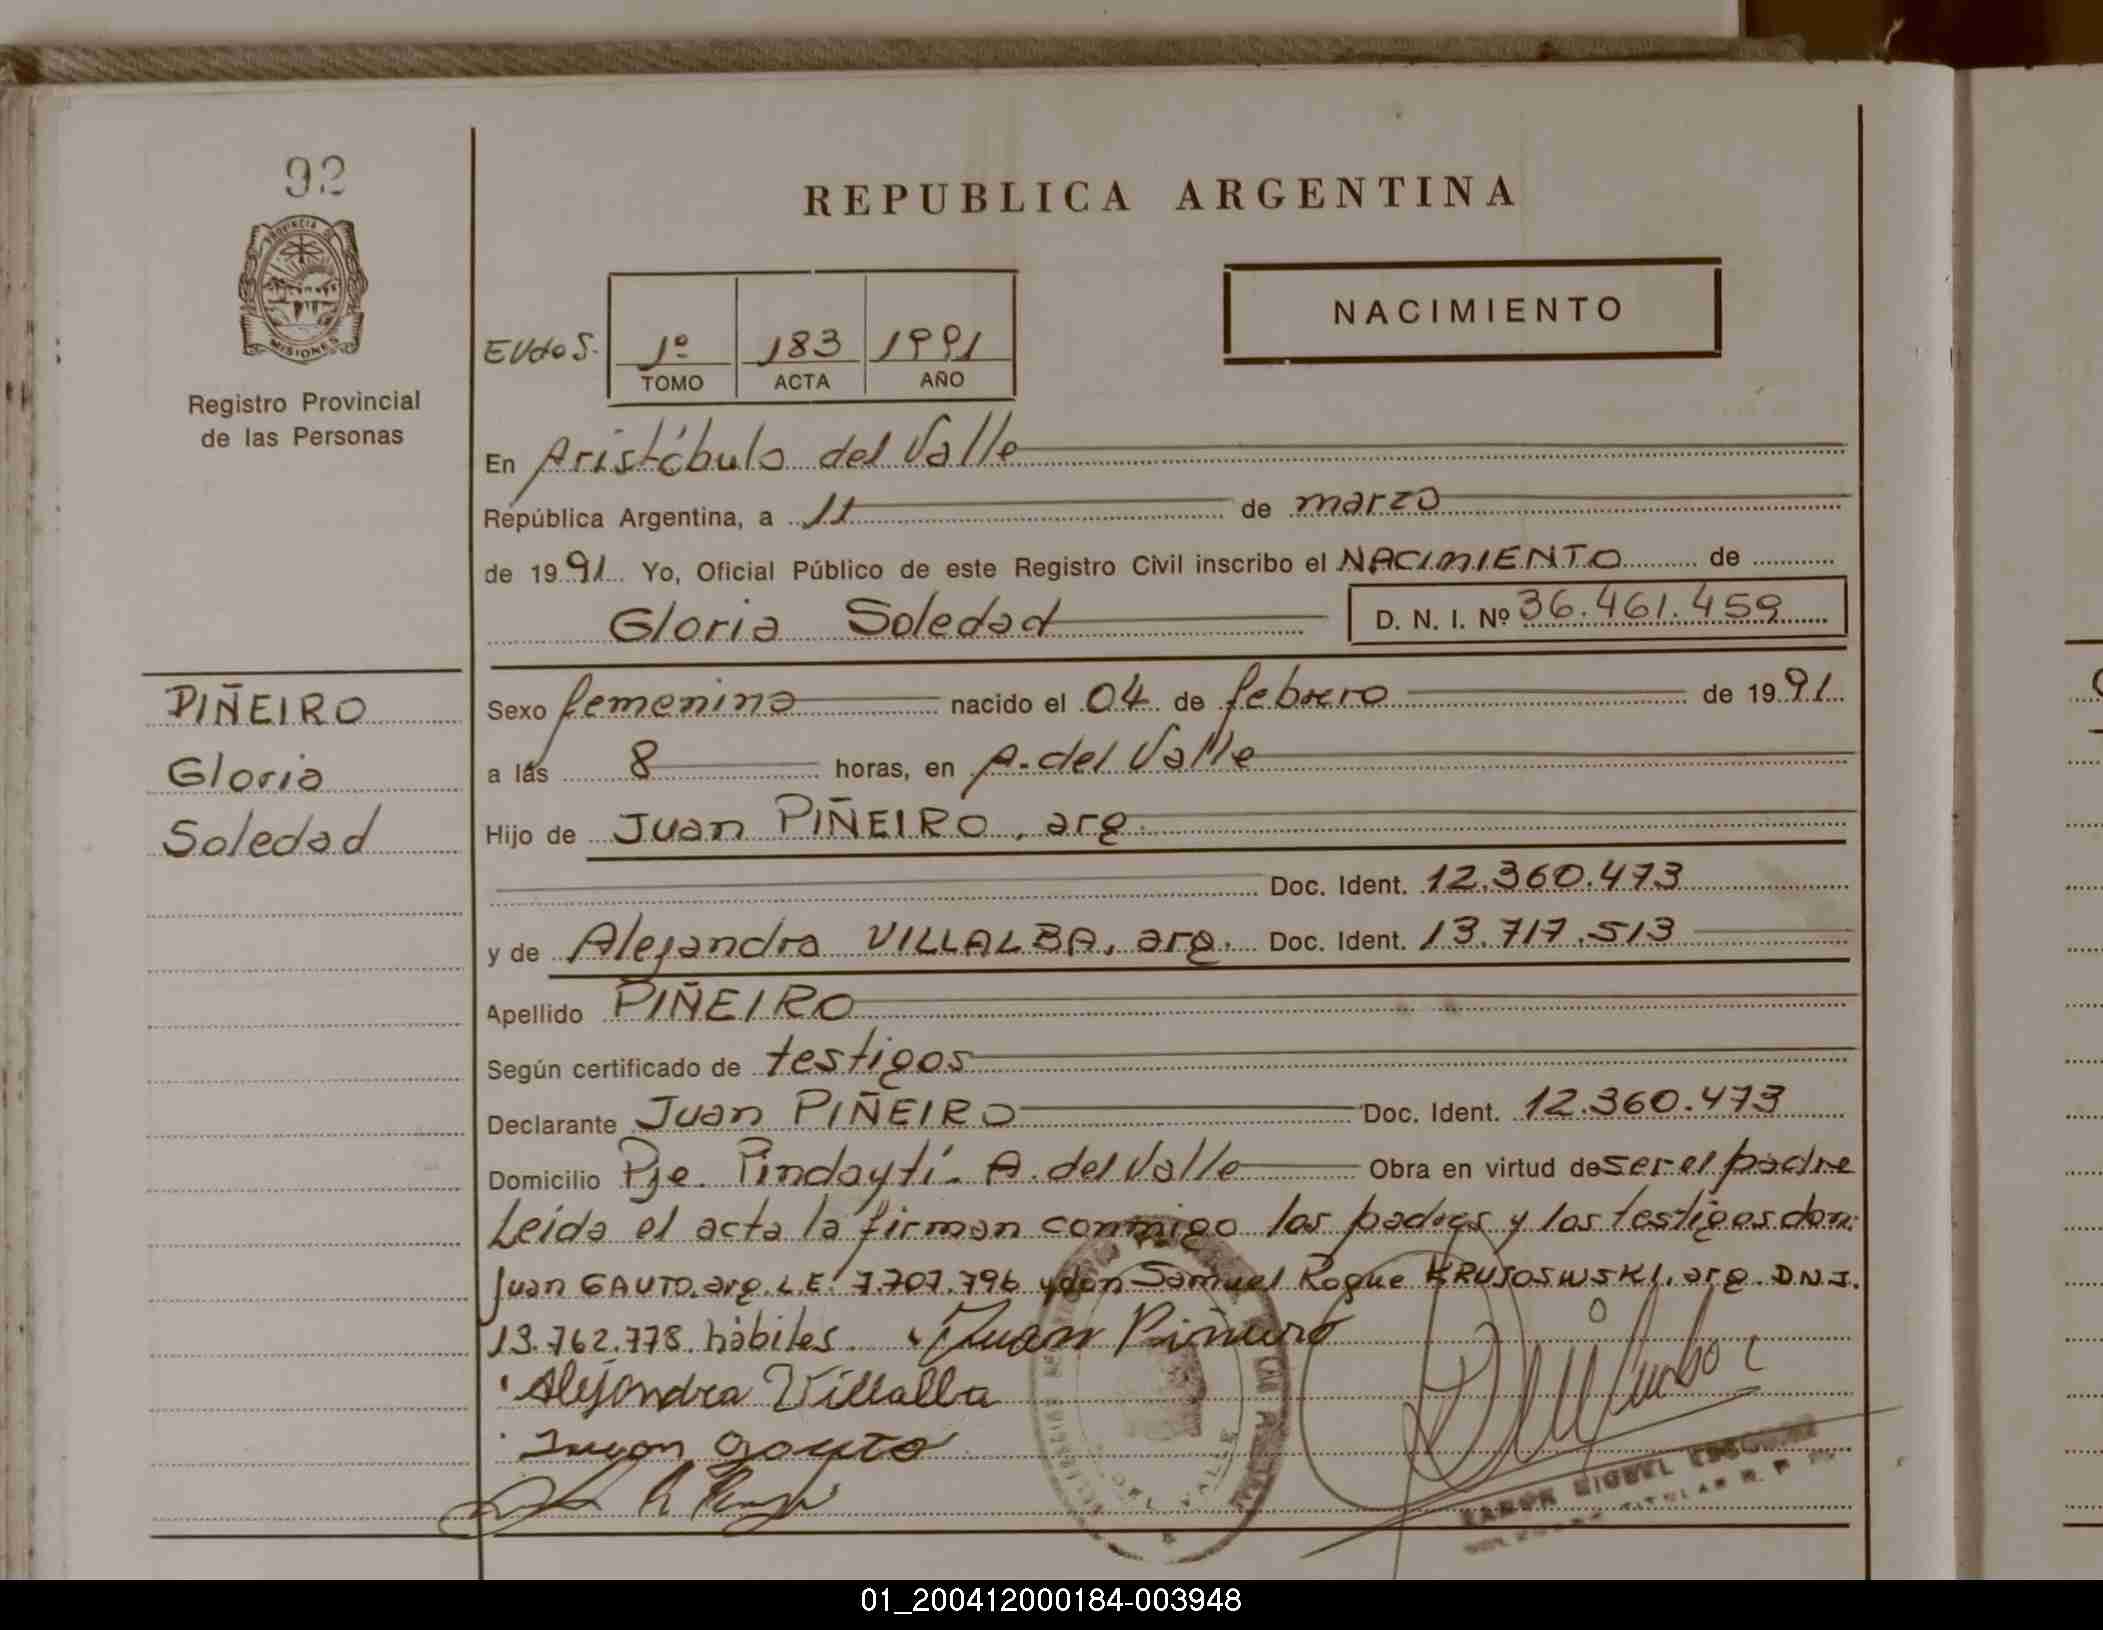 92
PROVINCIA DE
MISIONES
Registro Provincial
de las Personas
REPUBLICA ARGENTINA
NACIMIENTO
1º 183 1991
TOMO ACTA AÑO
En Aristóbulo del Valle
República Argentina, a 11 de marzo
de 1991 Yo, Oficial Público de este Registro Civil inscribo el NACIMIENTO de
Gloria Soledad D. N. I. Nº 36.461.459
PIÑEIRO
Gloria
Soledad
Sexo femenino nacido el 04 de febrero de 1991
a las 8 horas, en A. del Valle
Hijo de Juan PIÑEIRO, arg.
Doc. Ident. 12.360.473
y de Alejandra VILLALBA, arg. Doc. Ident. 13.717.513
Apellido PIÑEIRO
Según certificado de testigos
Declarante Juan PIÑEIRO Doc. Ident. 12.360.473
Domicilio Pje. Pindaytí - A. del Valle Obra en virtud de ser el padre
Leída el acta la firman conmigo los padres y los testigos don:
Juan GAUTO, arg. L.E. 7.707.796 y don Samuel Roque KRUJOSWSKI, arg. D.N.I.
13.762.778 hábiles. Juan Piñeiro
Alejandra Villalba
Juan Gauto
MIGUEL
VALLE
01_200412000184-003948